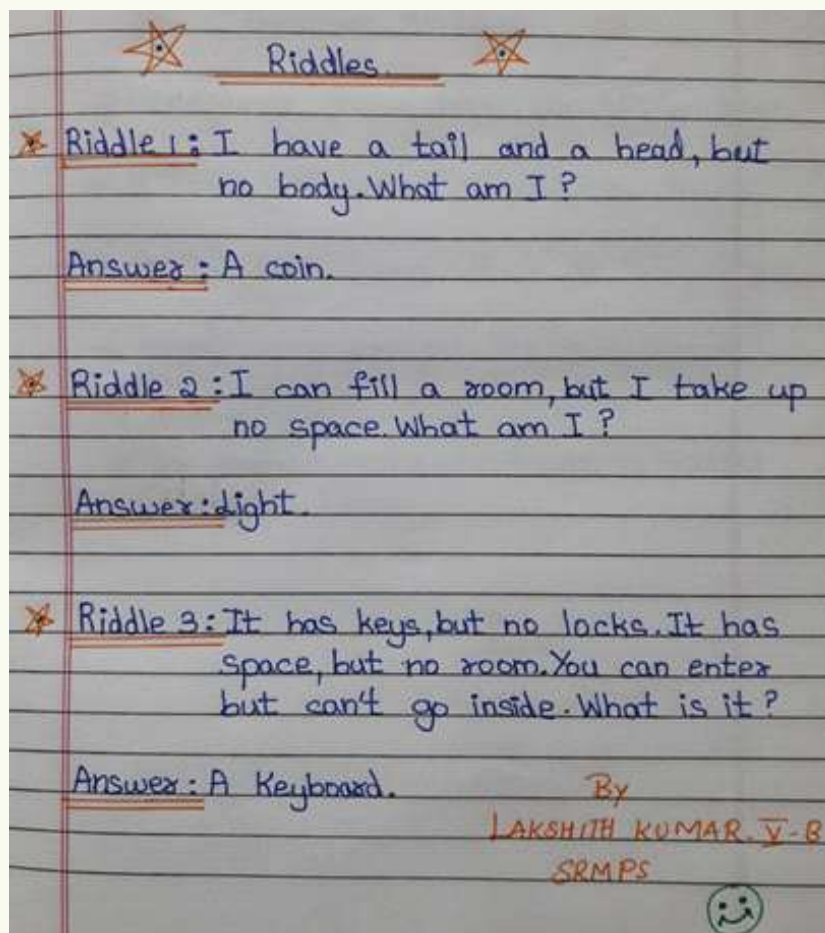 Riddles.
Riddle 1: I have a tail and a head, but
no body. What am I?
Answer: A coin.
Riddle 2: I can fill a room, but I take up
no space. What am I?
Answer: Light.
Riddle 3: It has keys, but no locks. It has
space, but no room. You can enter
but can't go inside. What is it?
Answer: A Keyboard.
By
LAKSHITH KUMAR. V-B
SRMPS